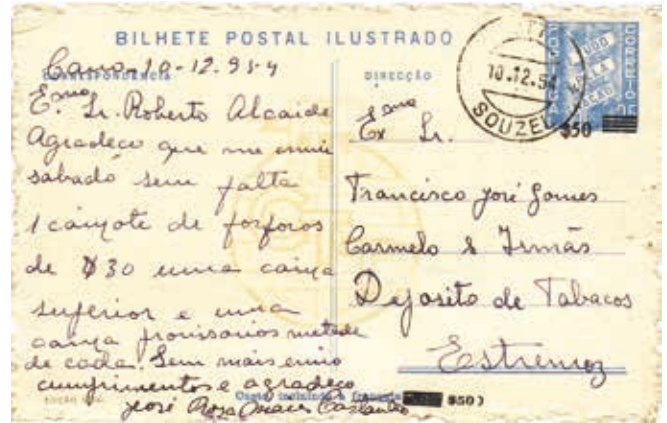 BILHETE POSTAL ILUSTRADO
CORRESPONDENCIA
Cano-10-12.954
Emo Sr. Roberto Alcaide
Agradeço que me envie
sabado sem falta
1 caixote de fosforos
de $30 uma caixa
superior e uma
caixa provisorios metade
de cada. Sem mais envio
cumprimentos e agradeço
José Rosa
DIRECÇÃO
Exmo Sr.
Francisco José Gomes
Carmelo & Irmãs
Deposito de Tabacos
Estremoz
10.12.54
SOUZEL
TUDO PELA NAÇÃO
CORREIO
$50
Custo incluindo a franquia
$50)